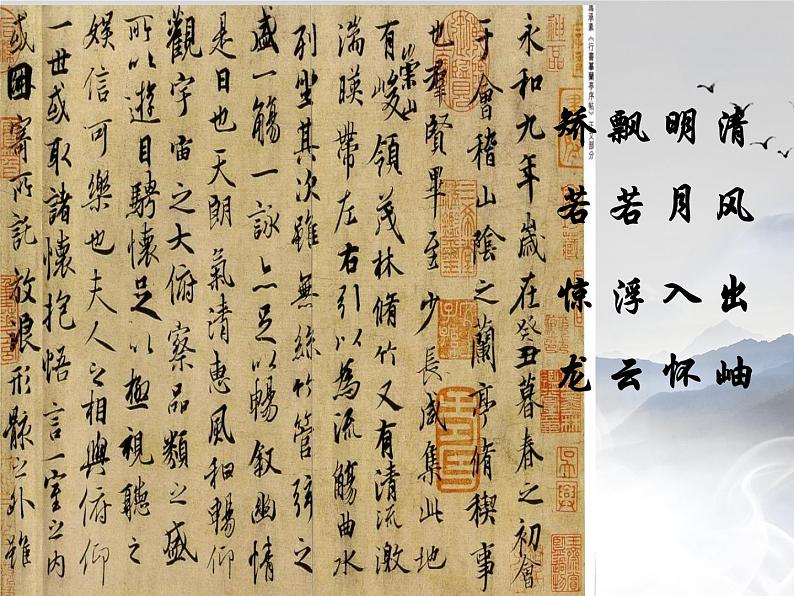 清风出岫
明月入怀
飘若浮云
矫若惊龙
承素《行書摹蘭亭序帖》正文部分
永和九年歲在癸丑暮春之初會
于會稽山陰之蘭亭脩稧事
也羣賢畢至少長咸集此地
有崇山峻領茂林脩竹又有清流激
湍暎帶左右引以為流觴曲水
列坐其次雖無絲竹管弦之
盛一觴一詠亦足以暢敘幽情
是日也天朗氣清惠風和暢仰
觀宇宙之大俯察品類之盛
所以遊目騁懷足以極視聽之
娛信可樂也夫人之相與俯仰
一世或取諸懷抱悟言一室之內
或因寄所託放浪形骸之外雖